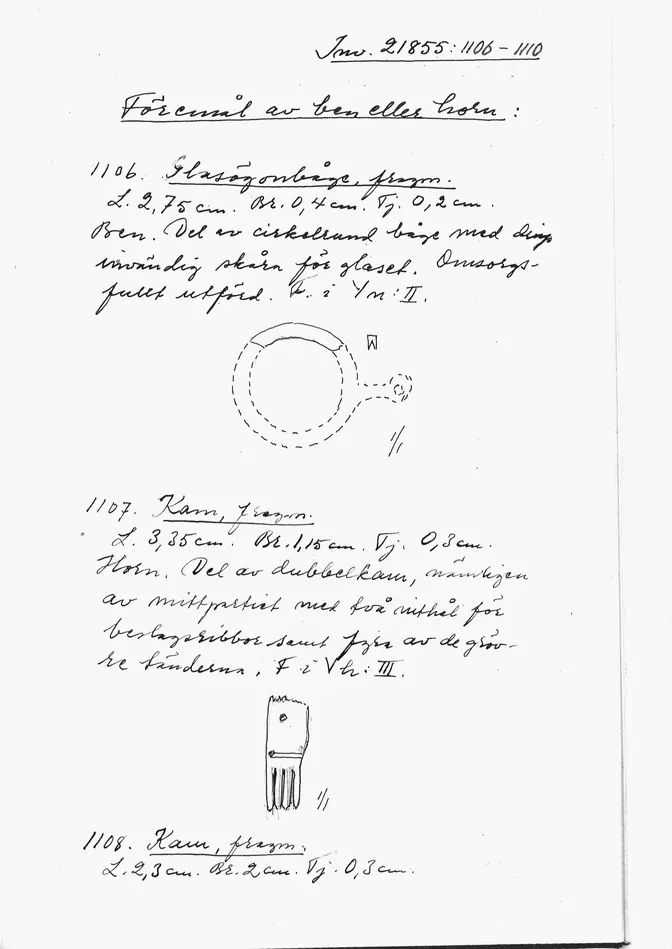 Inv. 21855:1106 – 1110
Föremål av ben eller horn:
1106. Glasögonbåge, fragm.
L. 2,75 cm. Br. 0,4 cm. Tj. 0,2 cm.
Ben. Del av cirkelrund båge med djup
invändig skåra för glaset. Omsorgs-
fullt utförd. F. i :II.
1/1
1107. Kam, fragm.
L. 3,35 cm. Br. 1,15 cm. Tj. 0,3 cm.
Horn. Del av dubbelkam, nämligen
av mittpartiet med två nithål för
beslagsribbor samt fyra av de gröv-
re tänderna. F i :III.
1/1
1108. Kam, fragm.
L. 2,3 cm. Br. 2 cm. Tj. 0,3 cm.